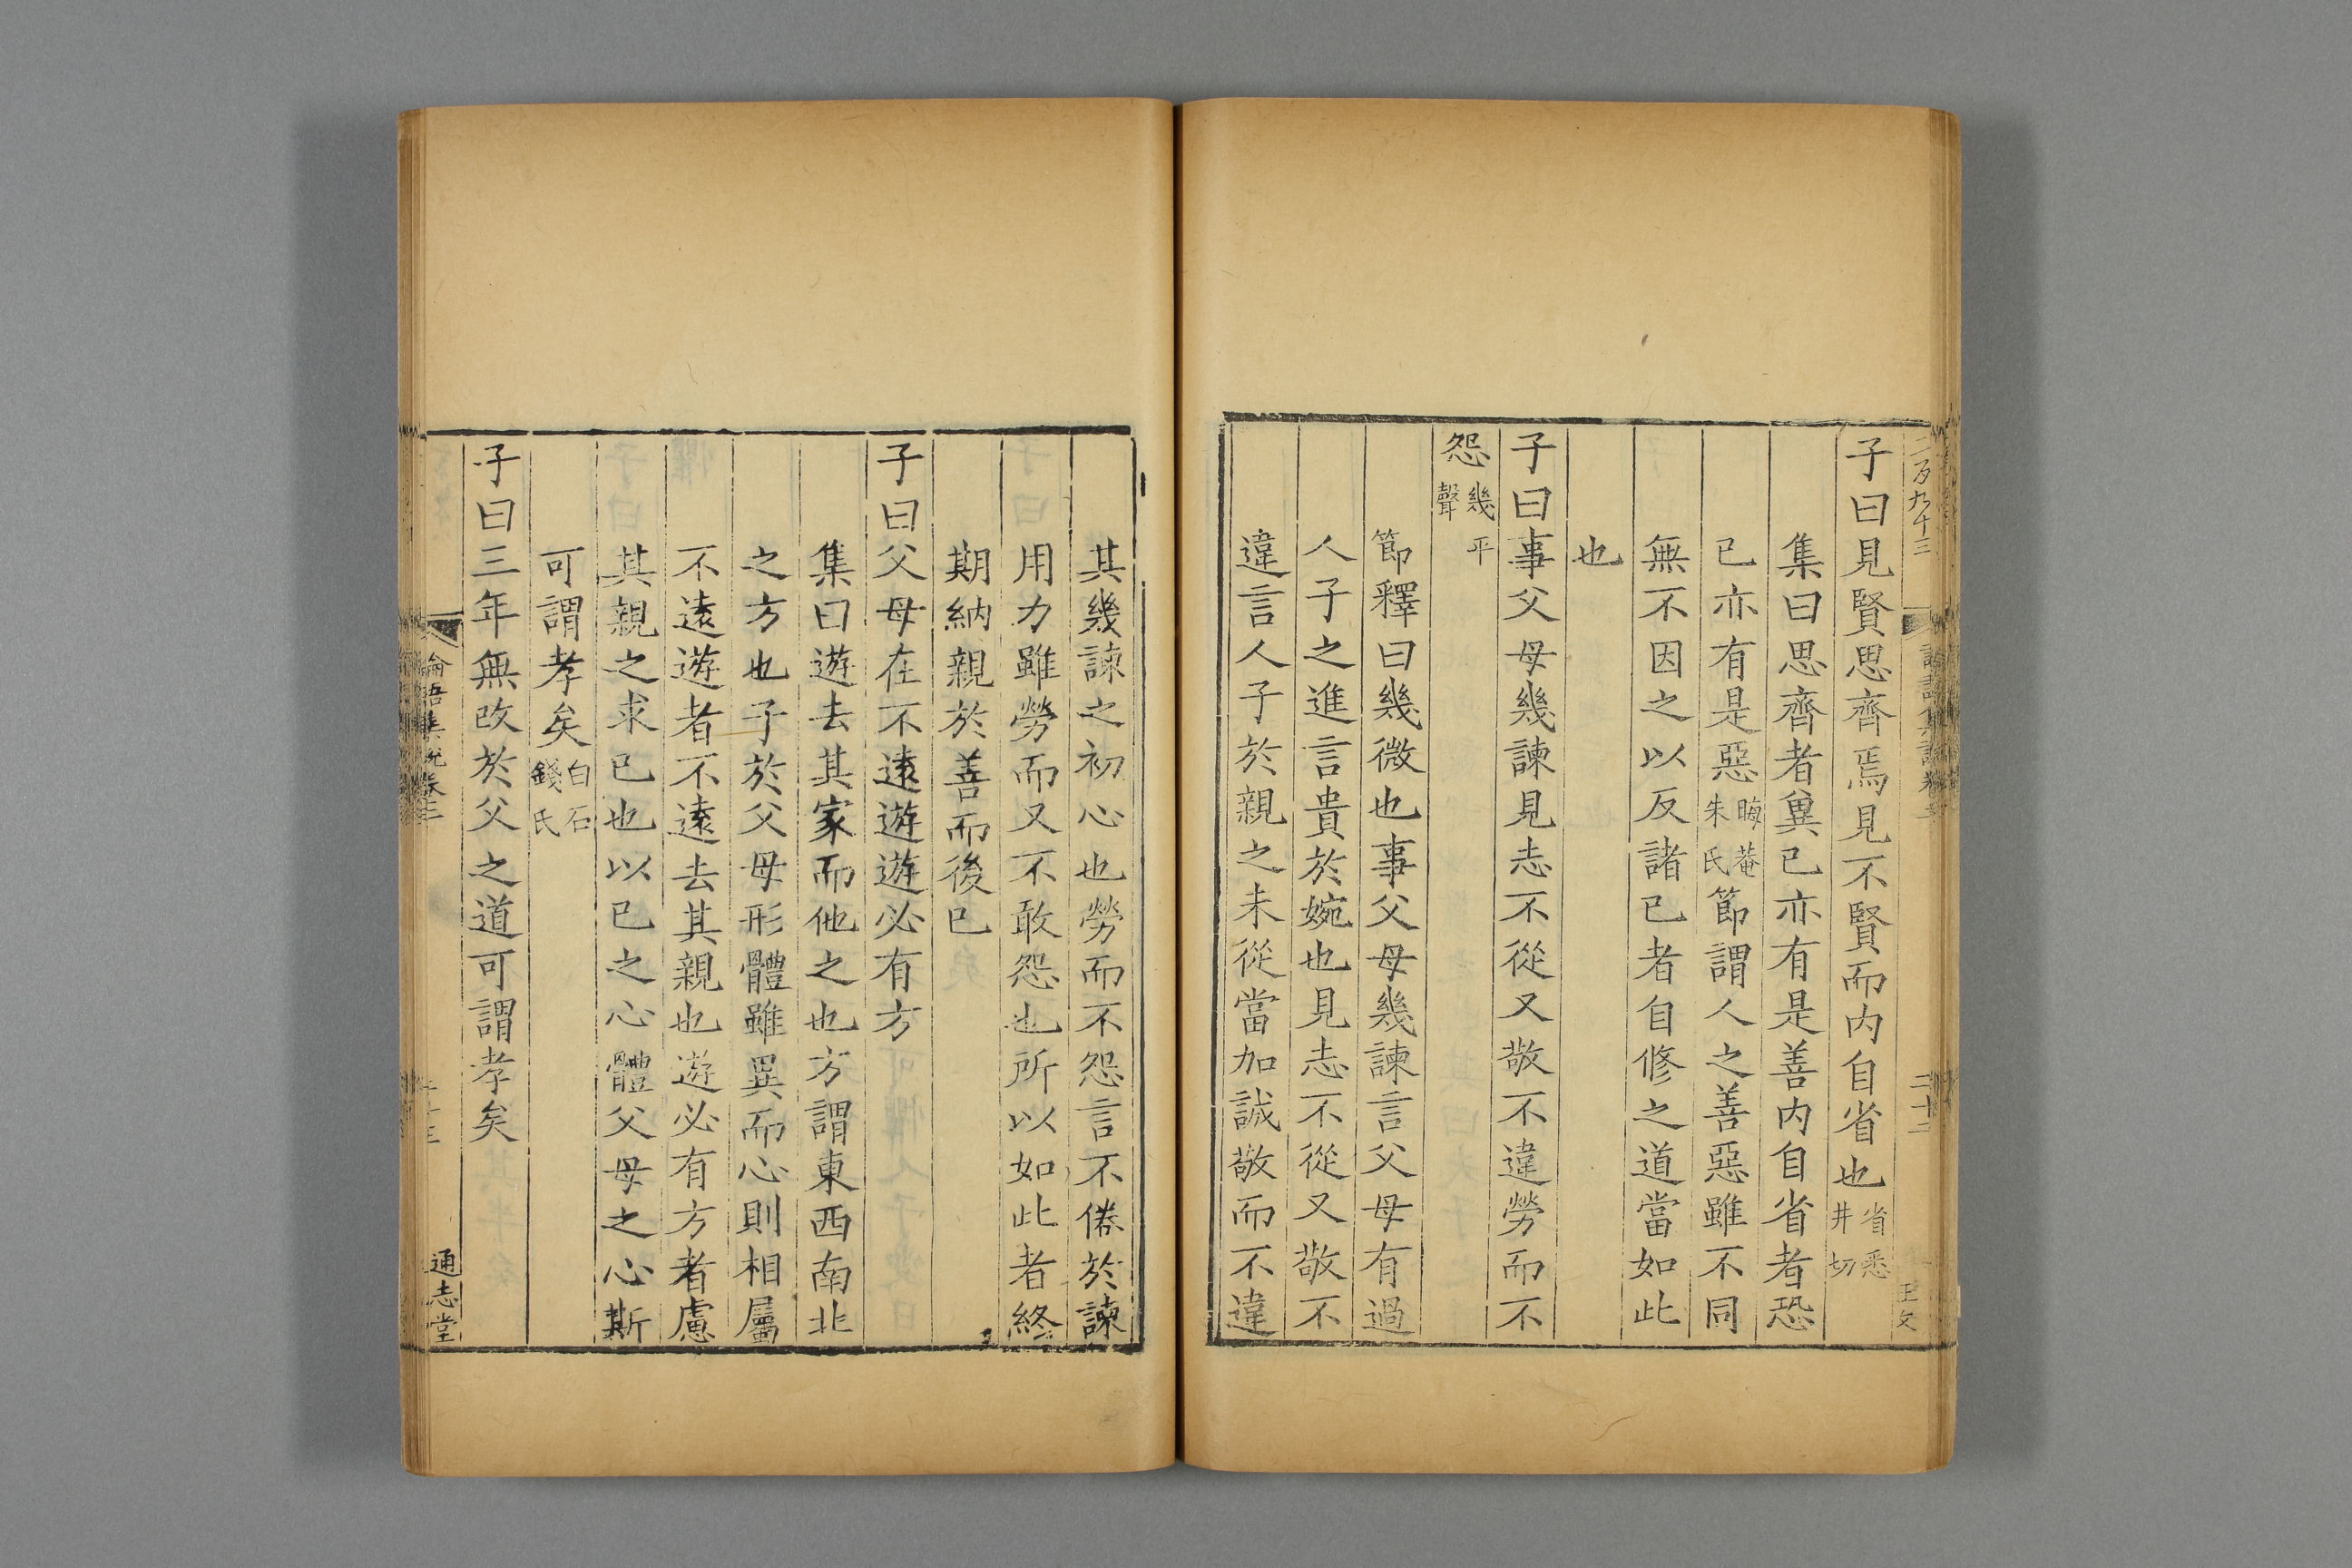 二百九十三
二十二
王文
子曰見賢思齊焉見不賢而内自省也省悉井切
集曰思齊者兾已亦有是善内自省者恐
已亦有是惡晦菴朱氏節謂人之善惡雖不同
無不因之以反諸已者自修之道當如此
也
子曰事父母幾諫見志不從又敬不違勞而不
怨幾平聲
節釋曰幾微也事父母幾諫言父母有過
人子之進言貴於婉也見志不從又敬不
違言人子於親之未從當加誠敬而不違
其幾諫之初心也勞而不怨言不倦於諫
用力雖勞而又不敢怨也所以如此者終
期納親於善而後已
子曰父母在不遠遊遊必有方
集曰遊去其家而他之也方謂東西南北
之方也子於父母形體雖異而心則相屬
不遠遊者不遠去其親也遊必有方者慮
其親之求已也以已之心體父母之心斯
可謂孝矣白石錢氏
子曰三年無改於父之道可謂孝矣
論語集說卷二
通志堂